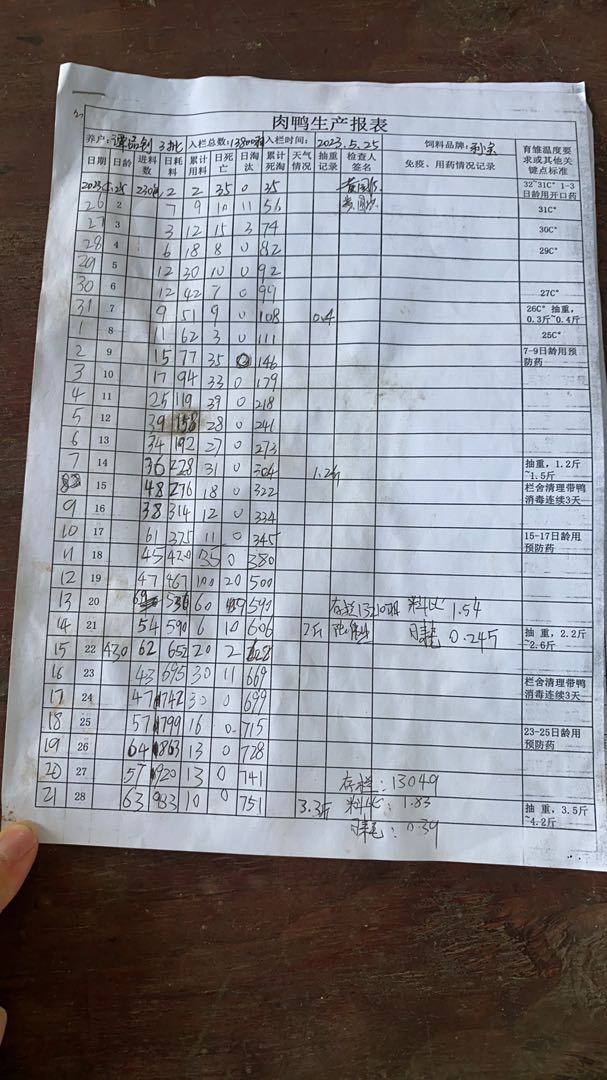 肉鸭生产报表
养户: 3批 入栏总数:13800羽 入栏时间: 2023.5.25 饲料品牌:
日期 日龄 进料数 日耗料 累计用料 日死亡 日淘汰 累计死淘 天气情况 抽重记录 检查人签名 免疫、用药情况记录 育雏温度要求或其他关键点标准
2023.5.25 230 2 2 35 0 35 32~31C° 1-3日龄用开口药
26 2 7 9 10 11 56 31C°
27 3 3 12 15 3 74 30C°
28 4 6 18 8 0 82 29C°
29 5 12 30 10 0 92
30 6 12 42 7 0 99 27C°
31 7 9 51 9 0 108 0.4 26C° 抽重,0.3斤~0.4斤
1 8 11 62 3 0 111 25C°
2 9 15 77 35 0 146 7-9日龄用预防药
3 10 17 94 33 0 179
4 11 25 119 39 0 218
5 12 39 158 28 0 241
6 13 34 192 27 0 273
7 14 36 228 31 0 304 1.2斤 抽重,1.2斤~1.5斤
15 48 276 18 0 322 栏舍清理带鸭消毒连续3天
9 16 38 314 12 0 334
10 17 61 375 11 0 345 15-17日龄用预防药
11 18 45 420 35 0 380
12 19 47 467 100 20 500
13 20 69 536 60 590 存栏13210羽 料比 1.54
14 21 54 590 6 10 606 2斤 日耗 0.245 抽重,2.2斤~2.6斤
15 22 430 62 652 20 2 628
16 23 43 695 30 11 669 栏舍清理带鸭消毒连续3天
17 24 47 742 30 0 699
18 25 57 799 16 0 715 23-25日龄用预防药
19 26 64 863 13 0 728
20 27 57 920 13 0 741 存栏:13049
21 28 63 983 10 0 751 3.3斤 料比:1.83 抽重,3.5斤~4.2斤
日耗:0.39